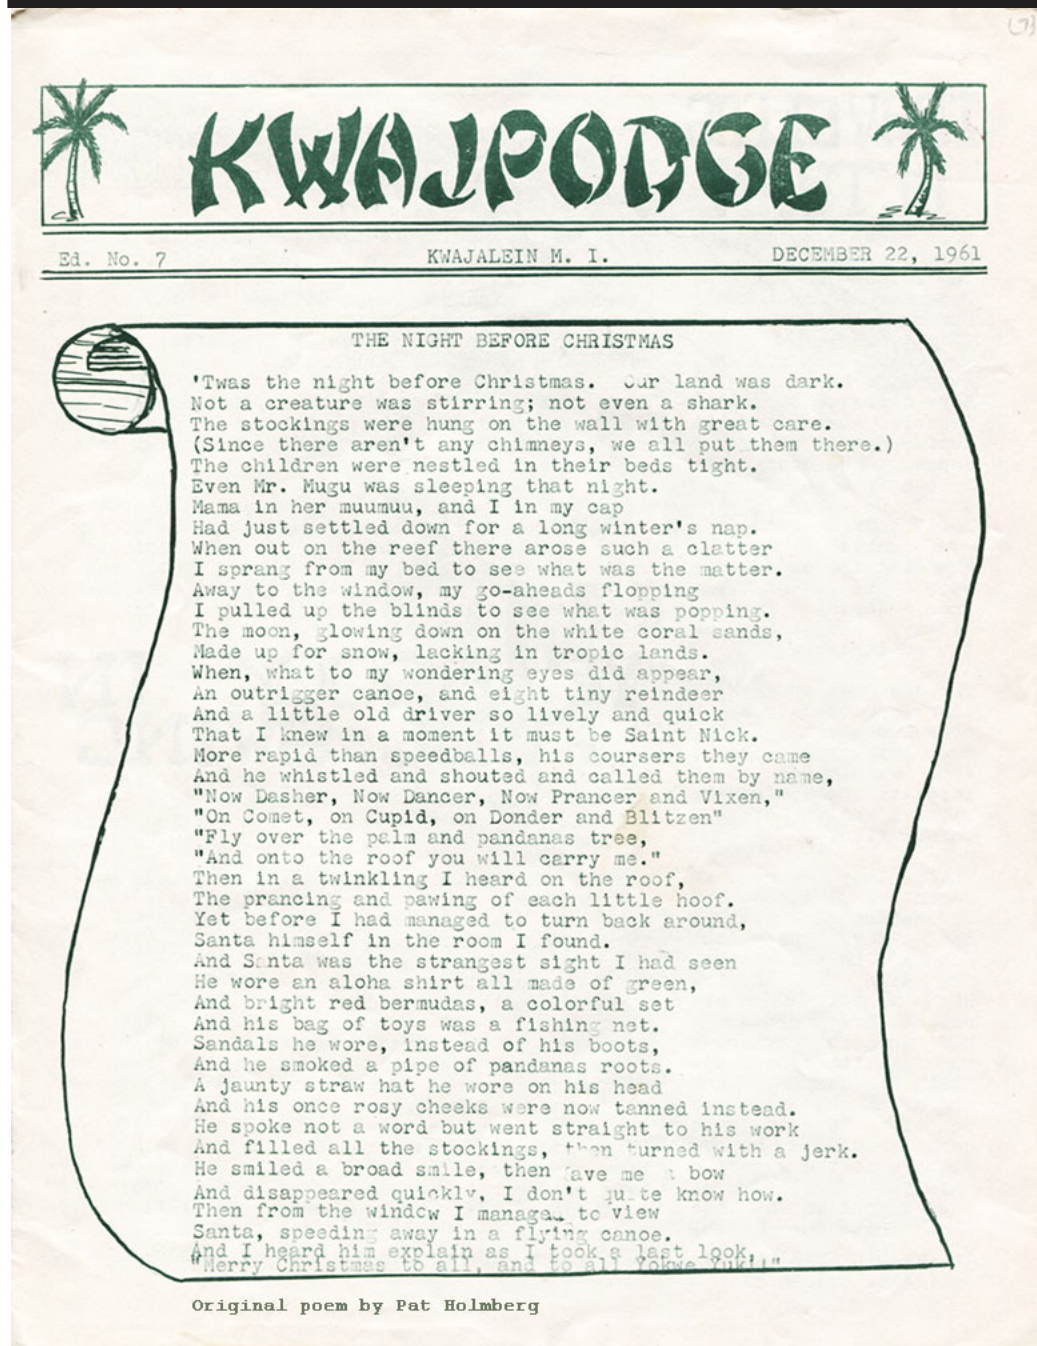 KWAJPODGE
Ed. No. 7 KWAJALEIN M. I. DECEMBER 22, 1961
THE NIGHT BEFORE CHRISTMAS
'Twas the night before Christmas. Our land was dark.
Not a creature was stirring; not even a shark.
The stockings were hung on the wall with great care.
(Since there aren't any chimneys, we all put them there.)
The children were nestled in their beds tight.
Even Mr. Mugu was sleeping that night.
Mama in her muumuu, and I in my cap
Had just settled down for a long winter's nap.
When out on the reef there arose such a clatter
I sprang from my bed to see what was the matter.
Away to the window, my go-aheads flopping
I pulled up the blinds to see what was popping.
The moon, glowing down on the white coral sands,
Made up for snow, lacking in tropic lands.
When, what to my wondering eyes did appear,
An outrigger canoe, and eight tiny reindeer
And a little old driver so lively and quick
That I knew in a moment it must be Saint Nick.
More rapid than speedballs, his coursers they came
And he whistled and shouted and called them by name,
"Now Dasher, Now Dancer, Now Prancer and Vixen,"
"On Comet, on Cupid, on Donder and Blitzen"
"Fly over the palm and pandanas tree,
"And onto the roof you will carry me."
Then in a twinkling I heard on the roof,
The prancing and pawing of each little hoof.
Yet before I had managed to turn back around,
Santa himself in the room I found.
And Santa was the strangest sight I had seen
He wore an aloha shirt all made of green,
And bright red bermudas, a colorful set
And his bag of toys was a fishing net.
Sandals he wore, instead of his boots,
And he smoked a pipe of pandanas roots.
A jaunty straw hat he wore on his head
And his once rosy cheeks were now tanned instead.
He spoke not a word but went straight to his work
And filled all the stockings, then turned with a jerk.
He smiled a broad smile, then gave me a bow
And disappeared quickly, I don't quite know how.
Then from the window I managed to view
Santa, speeding away in a flying canoe.
And I heard him explain as I took a last look,
"Merry Christmas to all, and to all Yokwe Yuk!!"
Original poem by Pat Holmberg